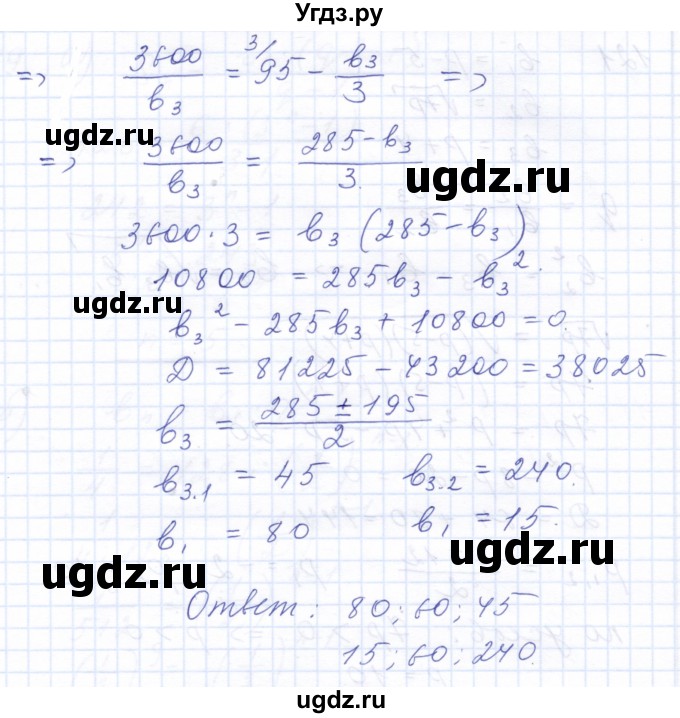 Угдз.ру
=> 3600/b₃ = ³⁄95 - b₃/3 =>
ugdz.ru
=> 3600/b₃ = (285-b₃)/3.
ugdz.ru
3600·3 = b₃(285-b₃)
10800 = 285b₃ - b₃².
ugdz.ru
b₃² - 285b₃ + 10800 = 0.
D = 81225 - 43200 = 38025
b₃ = (285 ± 195)/2
b₃.₁ = 45 b₃.₂ = 240.
b₁ = 80 b₁ = 15.
ugdz.ru
ugdz.ru
Ответ: 80; 60; 45
15; 60; 240.
ugdz.ru